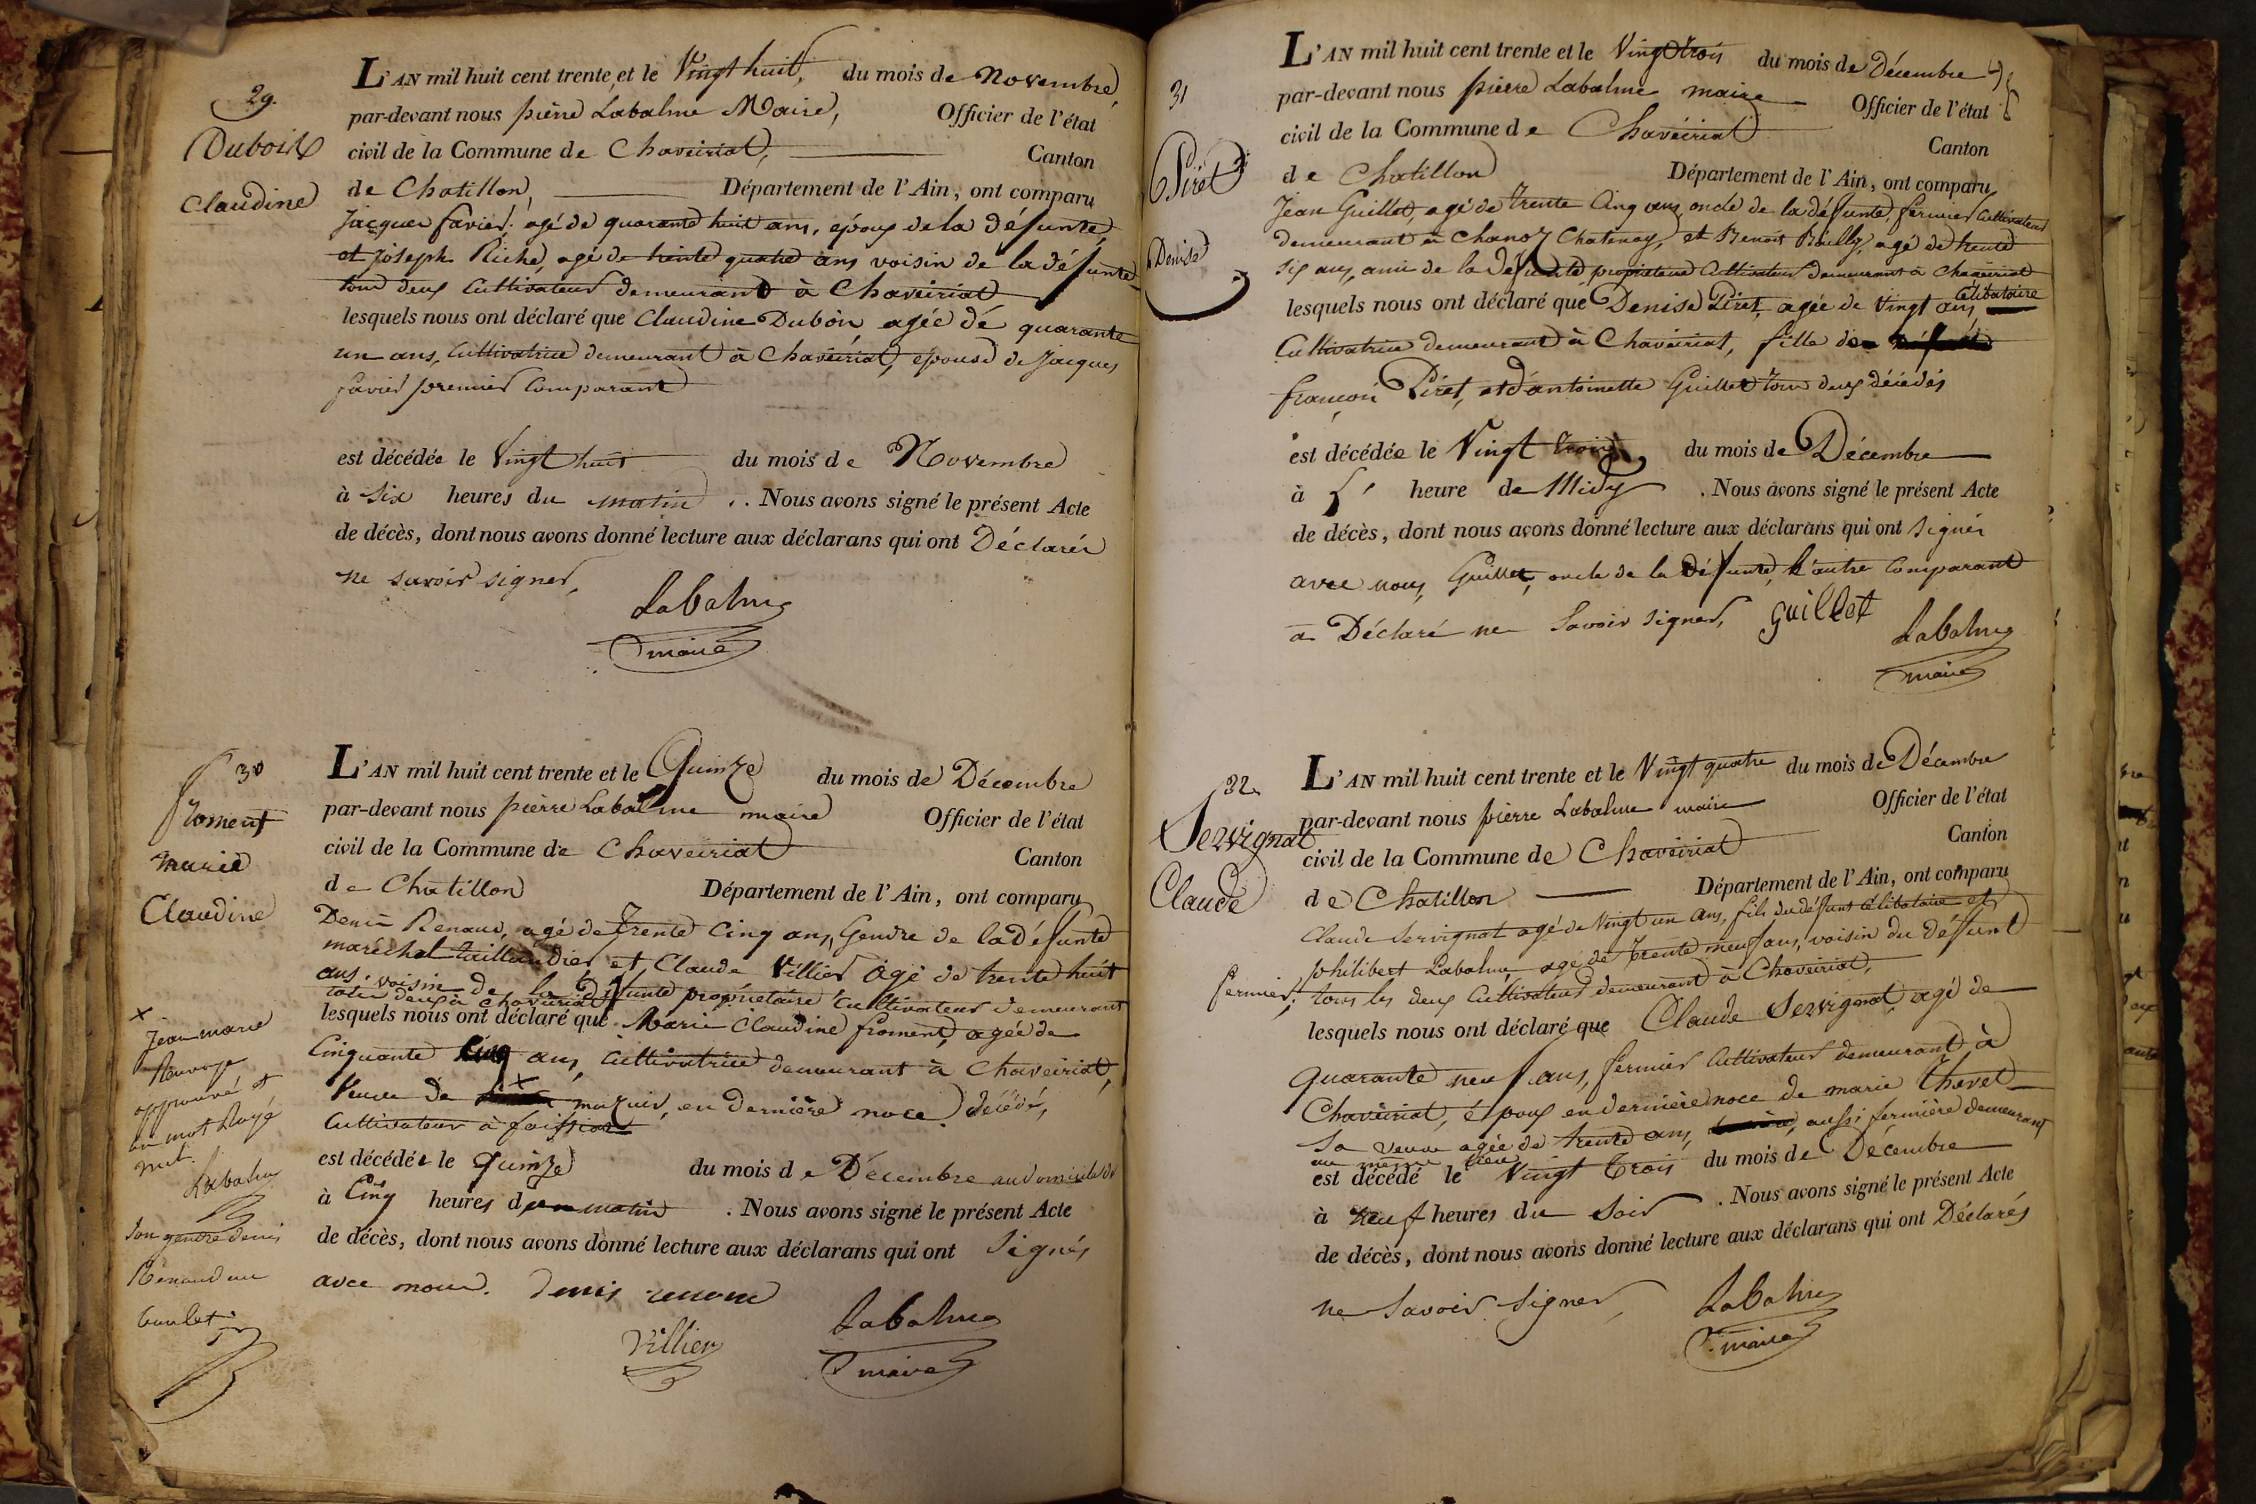 29.
Dubois
Claudine
L'AN mil huit cent trente et le Vingt huit, du mois de Novembre,
par-devant nous pierre Labalme Maire, Officier de l'état
civil de la Commune de Chaveiriat, Canton
de Chatillon, Département de l'Ain, ont comparu
Jacques favier, agé de quarante huit ans, epoux de la défunte,
et joseph Riche, agé de trente quatre ans voisin de la défunte
tous deux Cultivateurs demeurant à Chaveiriat
lesquels nous ont déclaré que Claudine Dubois agée de quarante
un ans, Cultivatrice demeurant à Chaveiriat, epouse de Jacques
favier premier Comparant
est décédée le Vingt huit du mois de Novembre
à Six heures du matin . Nous avons signé le présent Acte
de décès, dont nous avons donné lecture aux déclarans qui ont Déclarés
ne savoir signer,
Labalme
maire
30
froment
marie
Claudine
L'AN mil huit cent trente et le Quinze du mois de Décembre
par-devant nous pierre Labalme maire Officier de l'état
civil de la Commune de Chaveiriat Canton
de Chatillon Département de l'Ain, ont comparu
Denis Renaud, agé de Trente Cinq ans, Gendre de la Défunte
maréchal taillandier et Claude Villier agé de trente huit
ans, voisin de la Défunte propriétaire Cultivateur demeurant
tous deux à Chaveiriat
lesquels nous ont déclaré que Marie Claudine froment, agée de
Cinquante Cinq ans, Cultivatrice demeurant à Chaveiriat,
Veuve de x mazuir, en dernière noce, décédé,
Cultivateur à foissiat
est décédée le quinze du mois de Décembre au domicile de
à Cinq heures du matin . Nous avons signé le présent Acte
de décès, dont nous avons donné lecture aux déclarans qui ont Signés
avec nous. denis renaud
Labalme
Villier
maire
x
Jean marie
approuvé et
un mot Rayé
nul.
Labalme
Son gendre Denis
Renaud au
31
Piret
Denise
L'AN mil huit cent trente et le Vingt trois du mois de Décembre
par-devant nous pierre Labalme maire Officier de l'état
civil de la Commune de Chavéiriat Canton
de Chatillon Département de l'Ain, ont comparu
Jean Guillet, agé de trente Cinq ans, oncle de la défunte, fermier Cultivateur
demeurant à Chanoz Chatenay, et Benoit Reuilly, agé de trente
six ans, ami de la défunte propriétaire Cultivateur demeurant à Chavéiriat
lesquels nous ont déclaré que Denise Piret, agée de Vingt ans, célibataire
Cultivatrice demeurant à Chavéiriat, fille de
françois Piret, et d'antoinette Guillet tous deux décédés
est décédée le Vingt trois du mois de Décembre
à heure de Midy . Nous avons signé le présent Acte
de décès, dont nous avons donné lecture aux déclarans qui ont signés
avec nous, Guillet, oncle de la défunte, l'autre Comparant
a Déclaré ne Savoir signer, guillet
Labalme
maire
32.
Servignat
Claude
L'AN mil huit cent trente et le Vingt quatre du mois de Décembre
par-devant nous pierre Labalme maire Officier de l'état
civil de la Commune de Chavéiriat Canton
de Chatillon Département de l'Ain, ont comparu
Claude Servignat agé de Vingt un Ans, fils du défunt célibataire et
philibert Labalme agé de Trente neuf ans, voisin du défunt
fermier, tous les deux Cultivateurs demeurant à Chavéiriat,
lesquels nous ont déclaré que Claude Servignat agé de
Quarante neuf ans, fermier Cultivateur demeurant à
Chavéiriat, époux en dernière noce de marie Thevet
Sa veuve agée de trente ans, aussi fermière demeurant
au même lieu
est décédé le Vingt Trois du mois de Décembre
à neuf heures du Soir . Nous avons signé le présent Acte
de décès, dont nous avons donné lecture aux déclarans qui ont Déclarés
ne Savoir Signer,
Labalme
maire